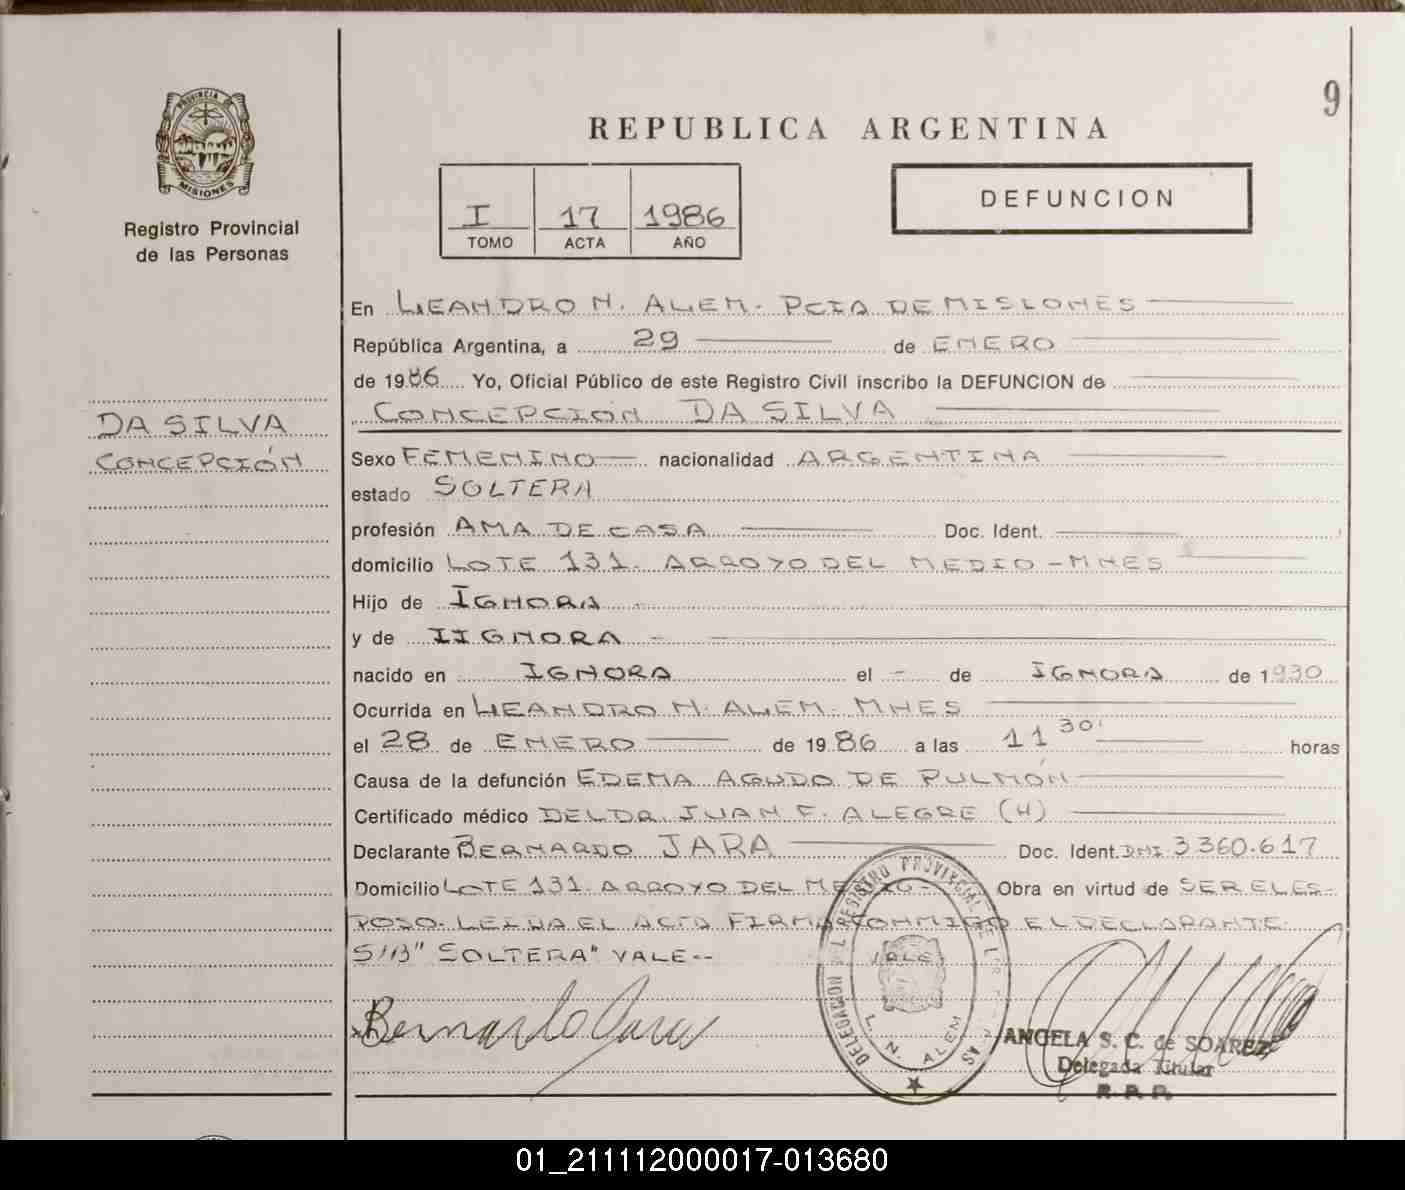 9
PROVINCIA DE
MISIONES
REPUBLICA ARGENTINA
DEFUNCION
I 17 1986
TOMO ACTA AÑO
Registro Provincial
de las Personas
DA SILVA
CONCEPCIÓN
En LEANDRO N. ALEM - PCIA DE MISIONES
República Argentina, a 29 de ENERO
de 1986 Yo, Oficial Público de este Registro Civil inscribo la DEFUNCION de
CONCEPCION DA SILVA
Sexo FEMENINO nacionalidad ARGENTINA
estado SOLTERA
profesión AMA DE CASA Doc. Ident.
domicilio LOTE 131. ARROYO DEL MEDIO - MNES
Hijo de IGNORA
y de IIGNORA -
nacido en IGNORA el - de IGNORA de 1930
Ocurrida en LEANDRO N. ALEM - MNES
el 28 de ENERO de 1986 a las 11 30' horas
Causa de la defunción EDEMA AGUDO DE PULMÓN
Certificado médico DEL DR. JUAN F. ALEGRE (H)
Declarante BERNARDO JARA Doc. Ident. DNI 3360.617
Domicilio LOTE 131. ARROYO DEL MEDIO - Obra en virtud de SER EL ES-
POSO. LEIDA EL ACTA FIRMA CONMIGO EL DECLARANTE.
S/B "SOLTERA" VALE--
VALE
Bernardo Jara
DELEGACION REGISTRO PROVINCIAL DE LAS
L. N. ALEM
ANGELA S. C. de SOAREZ
Delegada Titular
R. P. P.
01_211112000017-013680